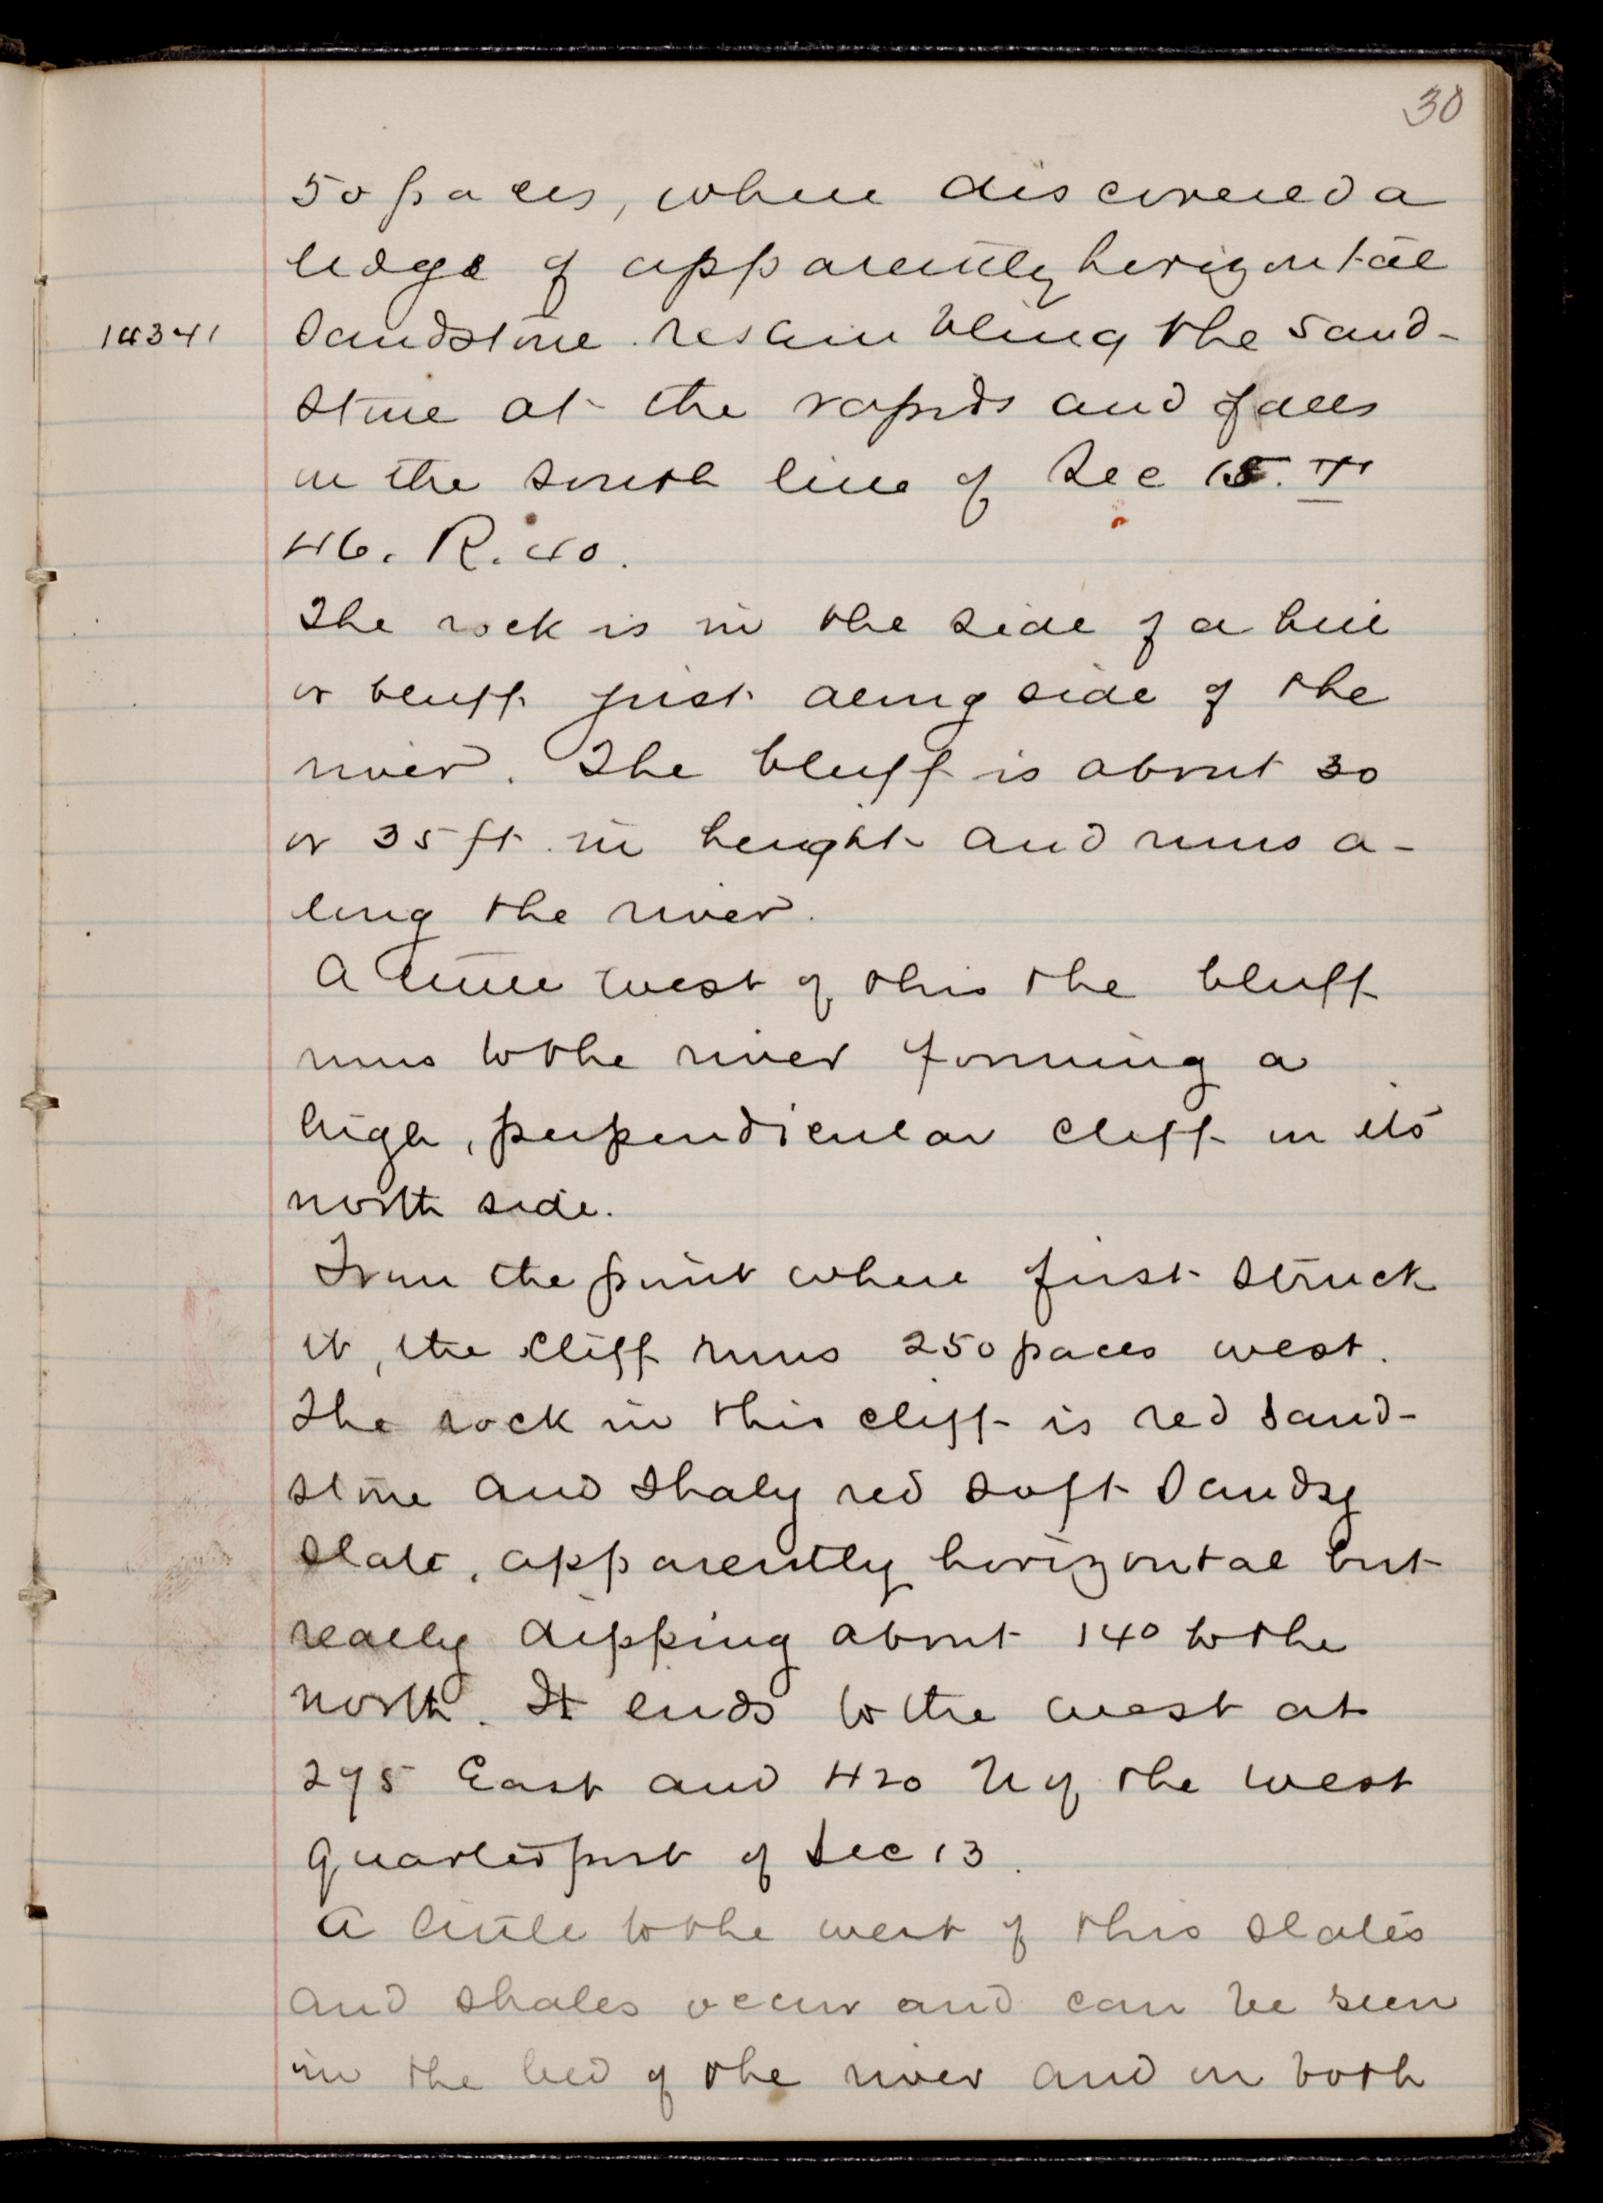 30
50 paces, where discovered a
ledge of apparently horizontal
14341 Sandstone resembling the sand-
stone at the rapids and falls
on the south line of Sec 15. T
46. R. 40.
The rock is in the side of a hill
or bluff just along side of the
river. The bluff is about 30
or 35 ft. in height and runs a-
long the river.
A little west of this the bluff
runs to the river forming a
high, perpendicular cliff on its
north side.
From the point where first struck
it, the cliff runs 250 paces west.
The rock in this cliff is red sand-
stone and shaly red soft Sandy
slate, apparently horizontal but
really dipping about 14° to the
north. It ends to the west at
275 East and 420 N of the west
quarter post of Sec 13.
A little to the west of this slates
and shales occur and can be seen
in the bed of the river and on both